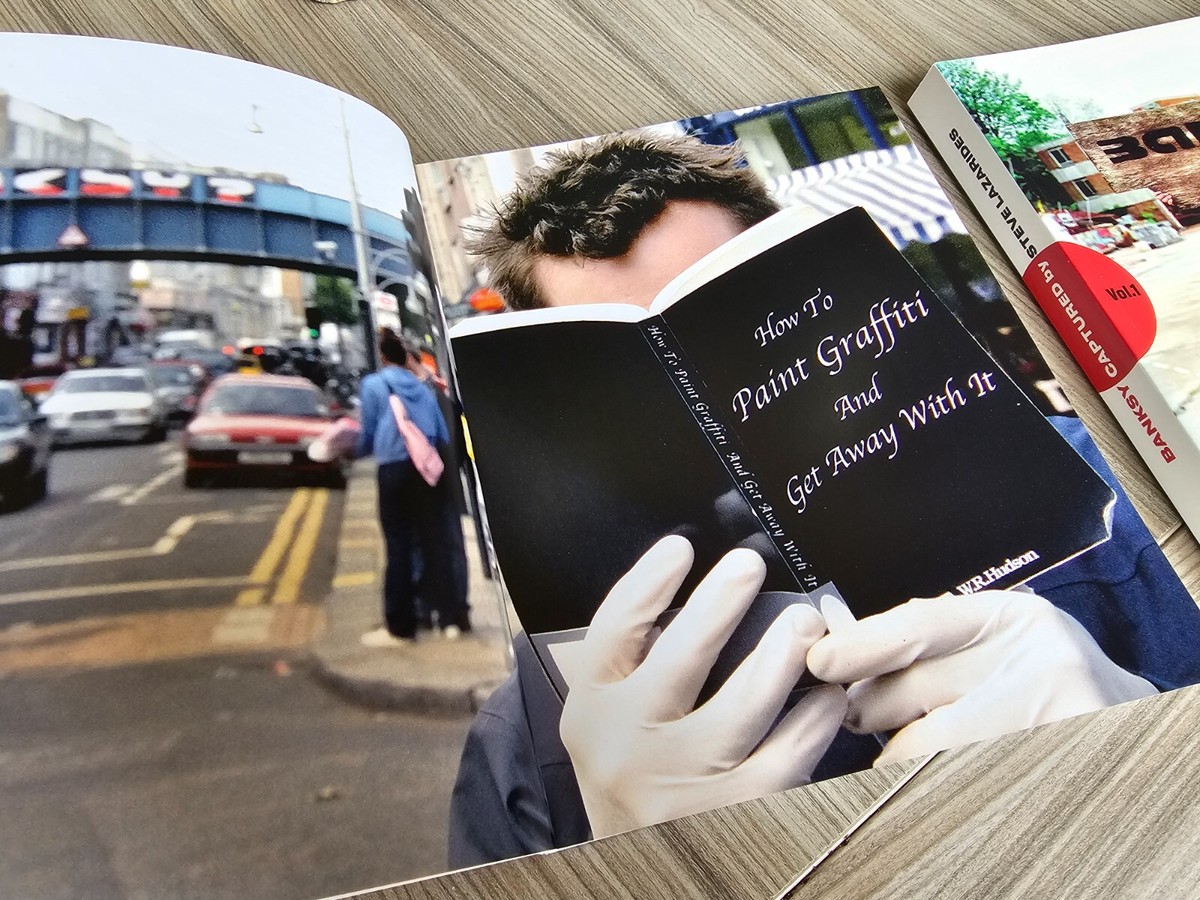 How To
Paint Graffiti
And
Get Away With It
W.R.Hudson
How To Paint Graffiti And Get Away With It
BANKSY CAPTURED by STEVE LAZARIDES
Vol.1